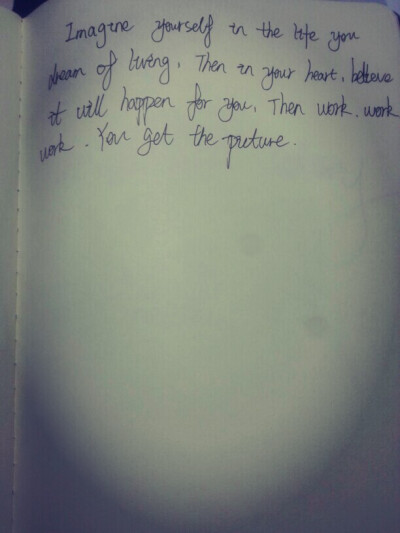 Imagine yourself in the life you
dream of living. Then in your heart, believe
it will happen for you. Then work. work
work. You get the picture.